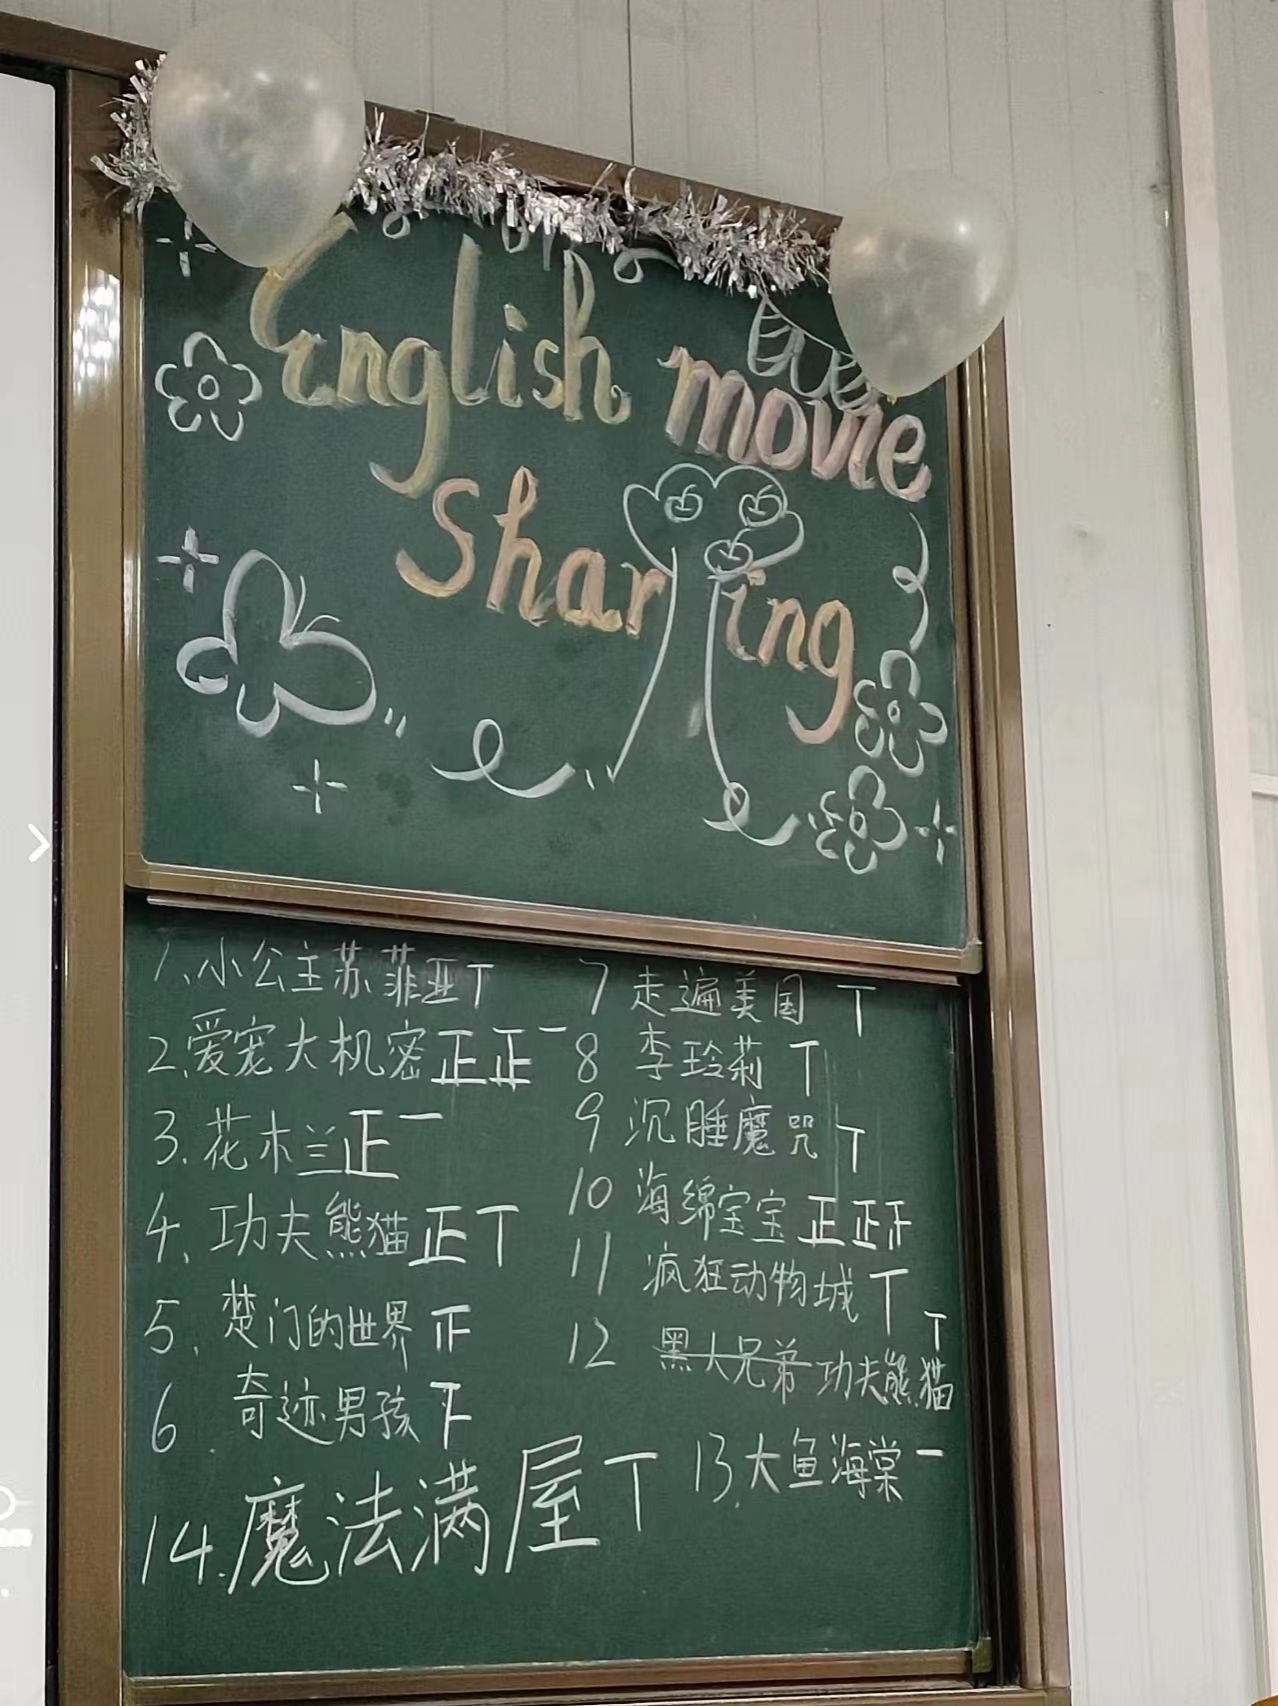 English movie
Sharing
1、小公主苏菲亚丅
2、爱宠大机密正正一
3、花木兰正一
4、功夫熊猫正丅
5、楚门的世界正
6 奇迹男孩下
7 走遍美国 丅
8 李玲莉 丅
9 沉睡魔咒 丅
10 海绵宝宝正正正
11 疯狂动物城丅
12 黑大兄弟功夫熊猫丅
13、大鱼海棠一
14.魔法满屋丅